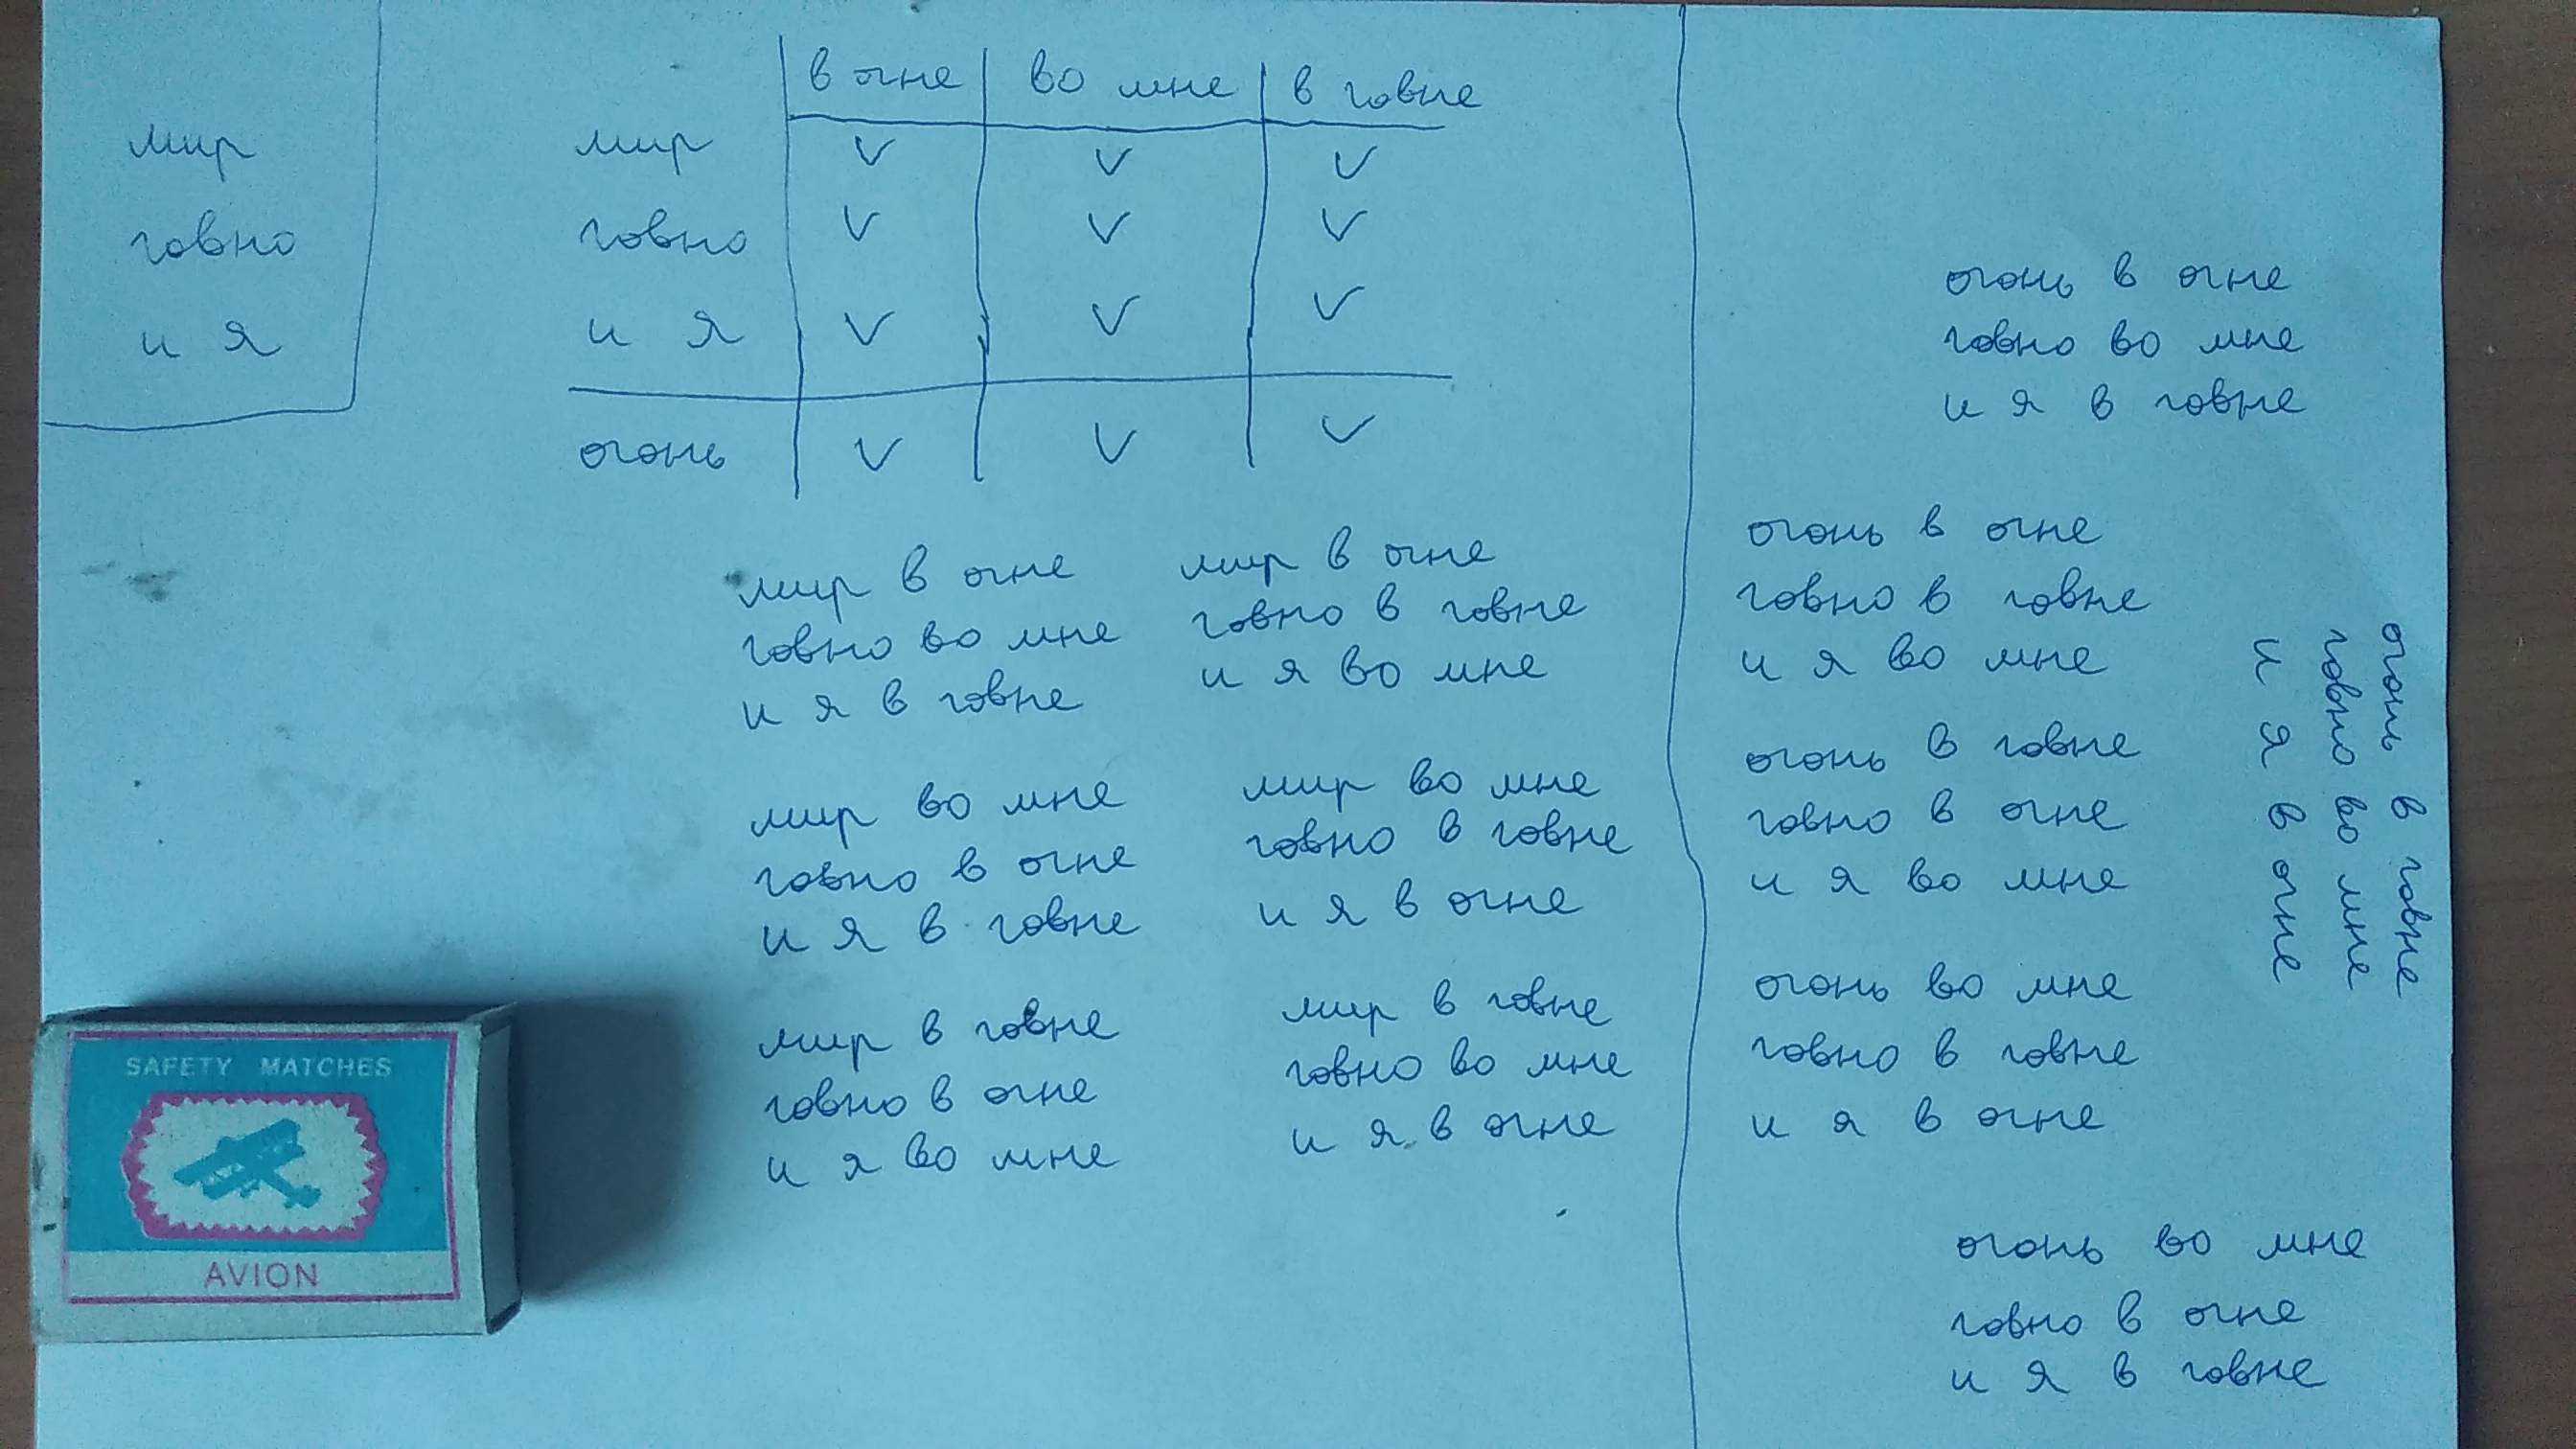 мир
говно
и я
в огне во мне в говне
мир V V V
говно V V V
и я V V V
огонь V V V
мир в огне
говно во мне
и я в говне
мир в огне
говно в говне
и я во мне
мир во мне
говно в огне
и я в говне
мир во мне
говно в говне
и я в огне
мир в говне
говно в огне
и я во мне
мир в говне
говно во мне
и я в огне
огонь в огне
говно во мне
и я в говне
огонь в огне
говно в говне
и я во мне
огонь в говне
говно в огне
и я во мне
огонь в говне
говно во мне
и я в огне
огонь во мне
говно в говне
и я в огне
огонь во мне
говно в огне
и я в говне
SAFETY MATCHES
AVION